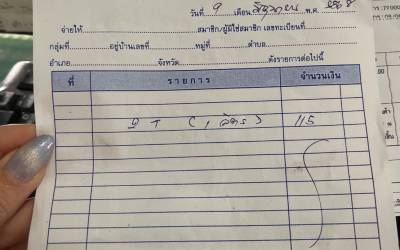 วันที่ 9 เดือน มิถุนายน พ.ศ. 2568
จ่ายให้ สมาชิก/ผู้มิใช่สมาชิก เลขทะเบียนที่
กลุ่มที่ อยู่บ้านเลขที่ หมู่ที่ ตำบล
อำเภอ จังหวัด ดังรายการต่อไปนี้
ที่ รายการ จำนวนเงิน
2T (1 ลิตร) 115